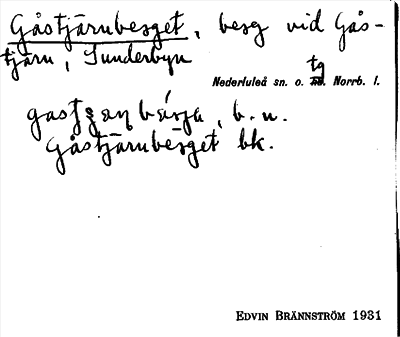 Gåstjärnberget, berg vid Gås-
tjärn, Sunderbyn
Nederluleå sn. o. tg Norrb. l.
b. u.
Gåstjärnberget bk.
EDVIN BRÄNNSTRÖM 1931